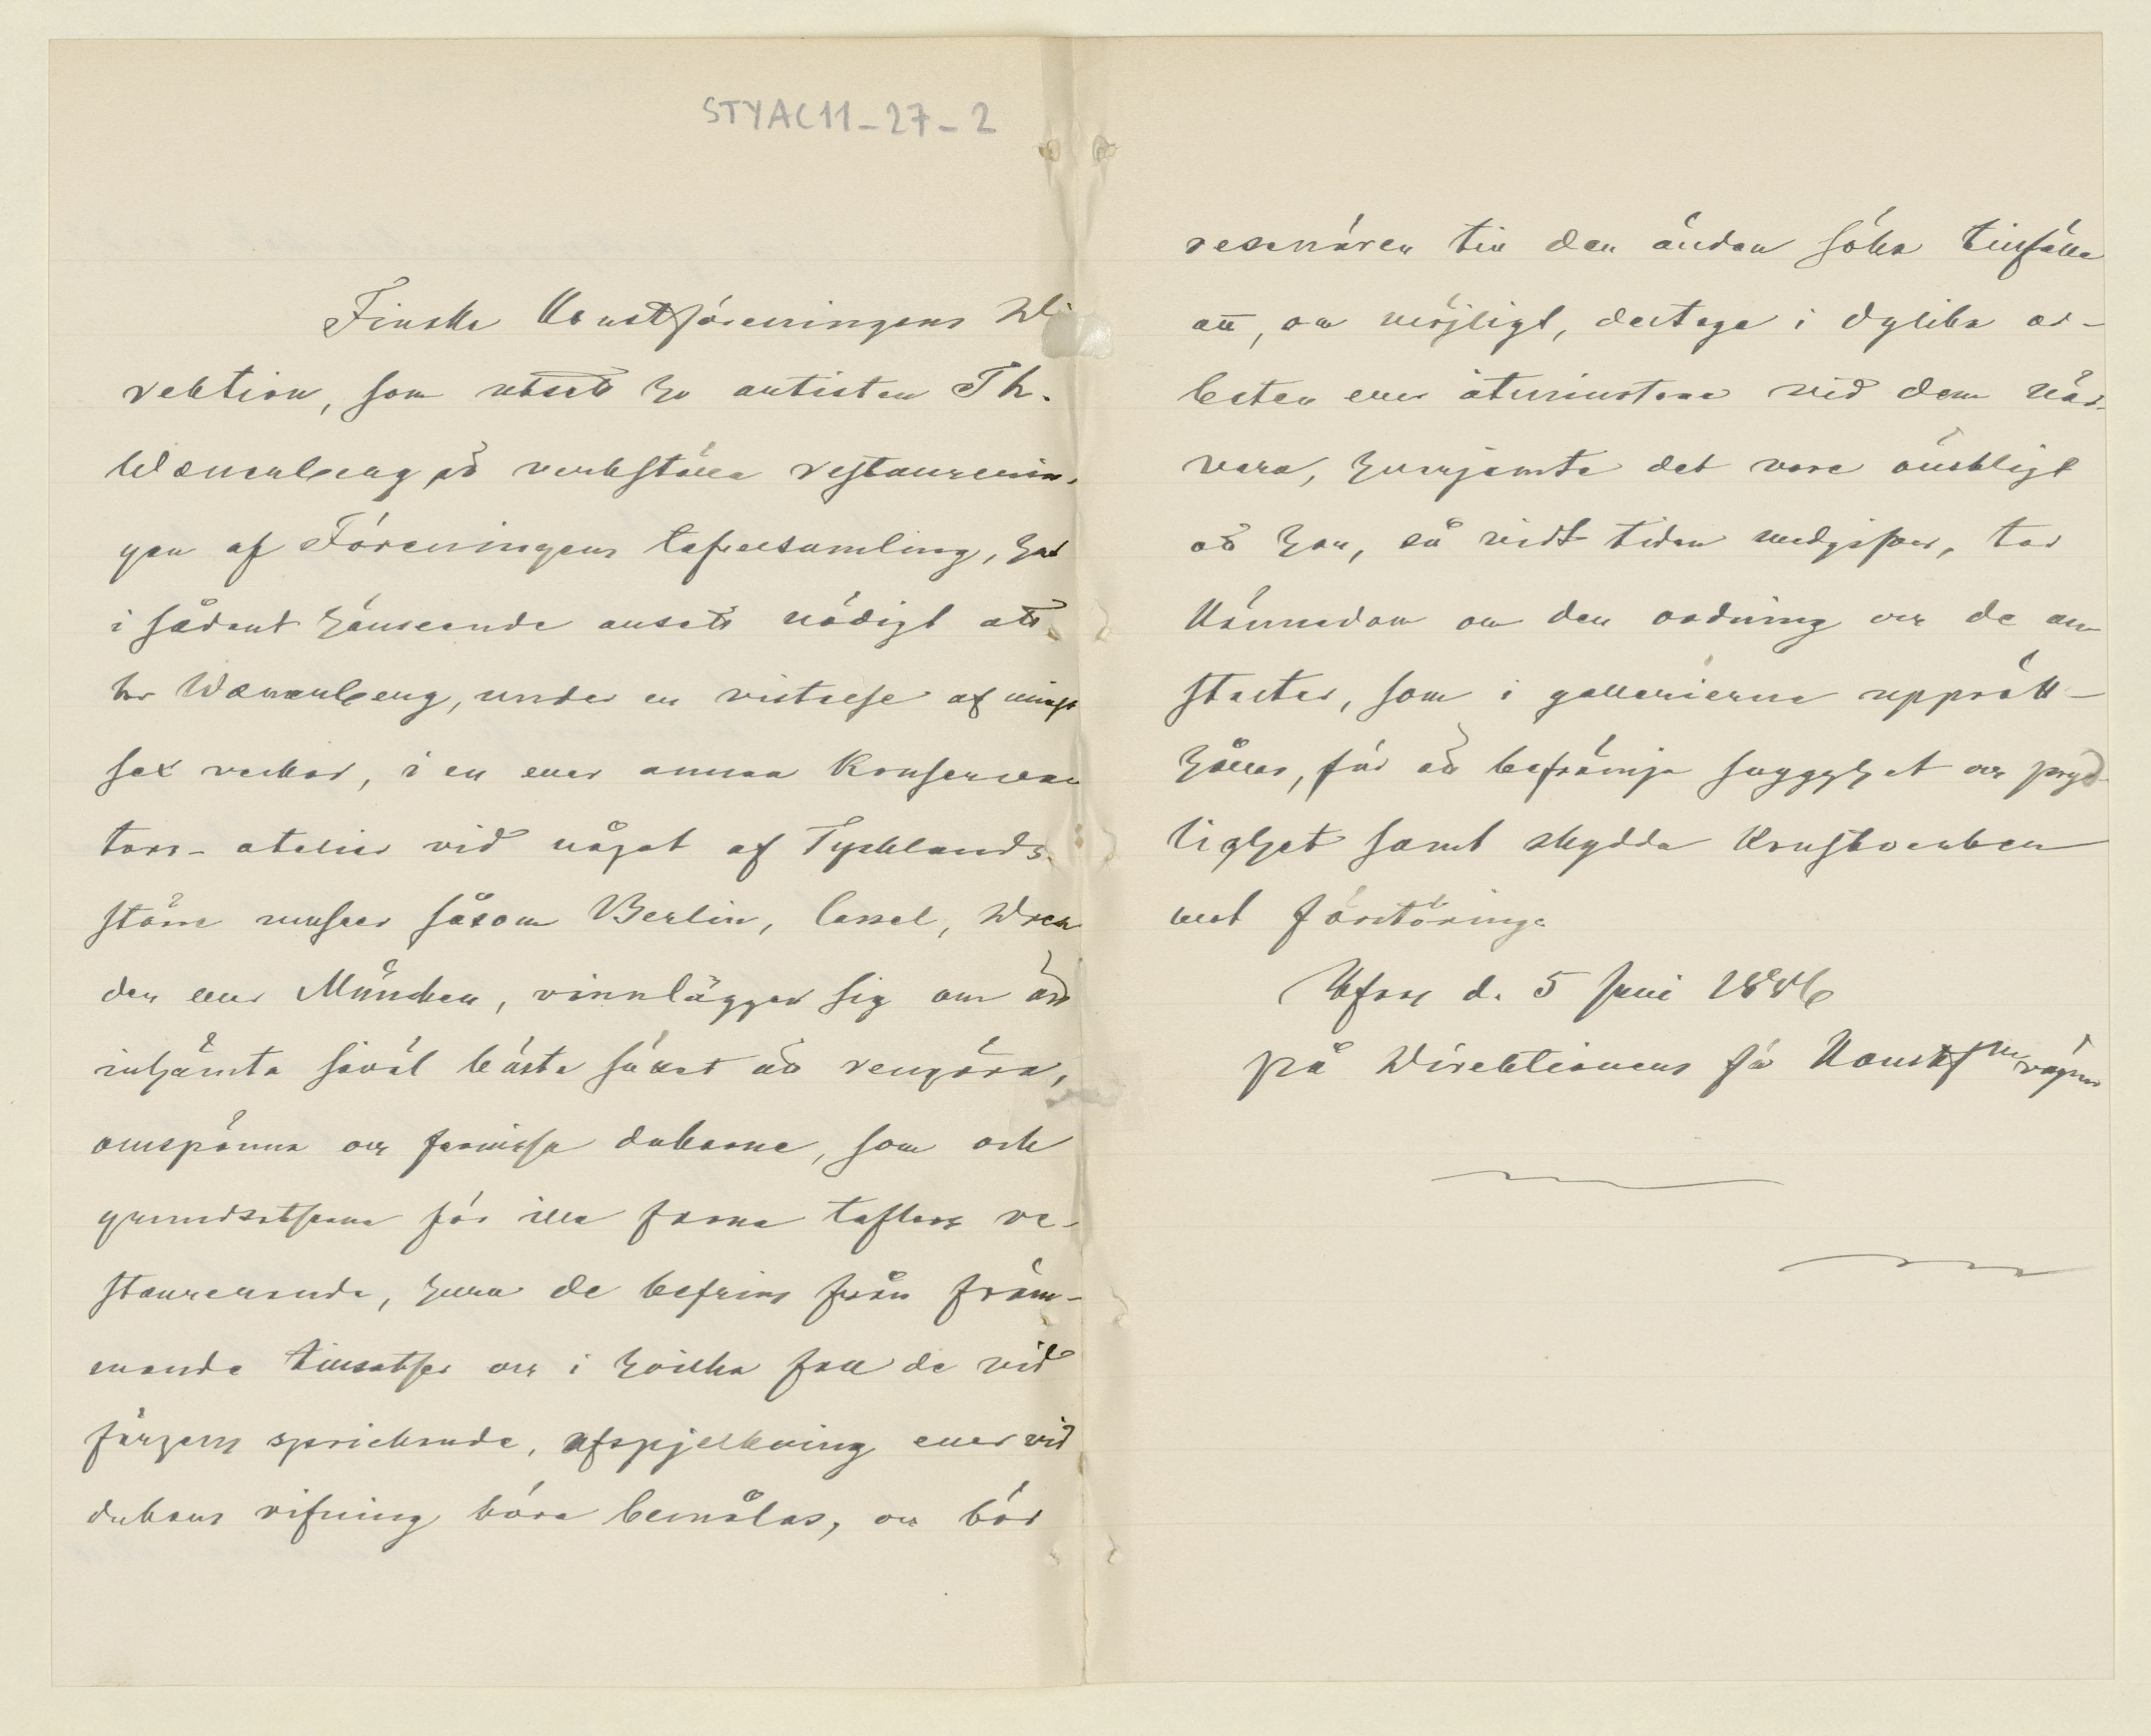 STYAC11-27-2
Finska Konstföreningens Di-
rektion, som utsett hr artisten Th.
Wænerberg att verkställa restaurerin-
gen af Föreningens tafvelsamling, har
i sådant hänseende ansett nödigt att
hr Wænerberg, under en vistelse af minst
sex veckor, i en eller annan Konserva-
tors-atelier vid något af Tysklands
större museer såsom Berlin, Cassel, Dres-
den eller München, vinnlägger sig om att
inhämta såväl bästa sättet att rengöra,
omspänna och fernissa dukarne, som ock
grundsatserna för illa farna taflors re-
staurerande, huru de befrias från främ-
mande tillsatser och i hvilka fall de vid
färgens sprickande, afspjelkning eller vid
dukens rifning böra bemålas, och bör
resenären till den ändan söka tillfälle
att, om möjligt, deltaga i dylika ar-
beten eller åtminstone vid dem när-
vara, hvarjemte det vore önskligt
att han, så vidt tiden medgifver, tar
kännedom om den ordning och de an-
stalter, som i gallerierna upprätt-
hållas, för att befrämja snygghet och pryd-
lighet samt skydda konstverken
mot förstöring.
Hfors d. 5 Juni 1886
på Direktionens för Konstfren vägnar